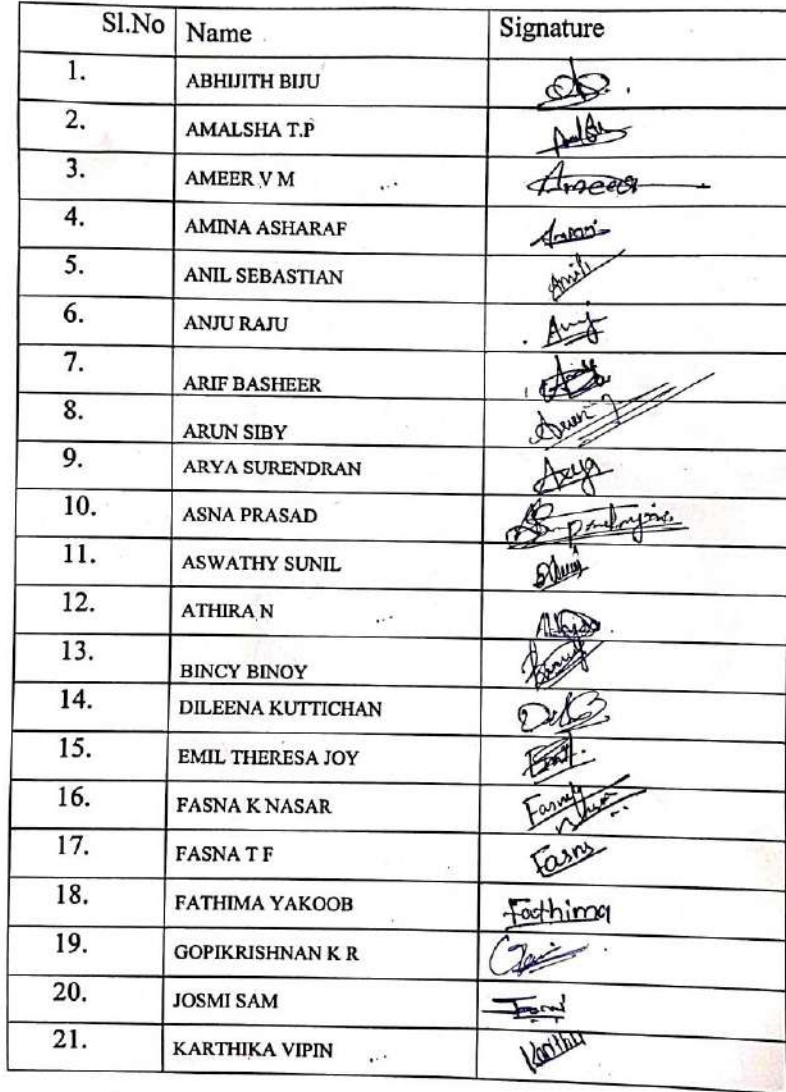 Sl.No Name Signature
1. ABHIJITH BIJU
2. AMALSHA T.P
3. AMEER V M Ameer
4. AMINA ASHARAF
5. ANIL SEBASTIAN Anil
6. ANJU RAJU Anju
7. ARIF BASHEER
8. ARUN SIBY Arun
9. ARYA SURENDRAN Arya
10. ASNA PRASAD
11. ASWATHY SUNIL
12. ATHIRA N
13. BINCY BINOY
14. DILEENA KUTTICHAN
15. EMIL THERESA JOY Emil
16. FASNA K NASAR
17. FASNA T F Fasna
18. FATHIMA YAKOOB Fathima
19. GOPIKRISHNAN K R
20. JOSMI SAM Josmi
21. KARTHIKA VIPIN